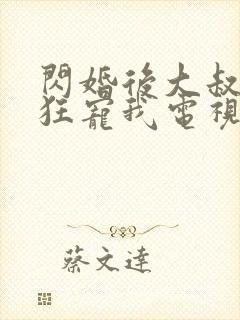 閃婚後大叔
狂寵我電視
蔡文達